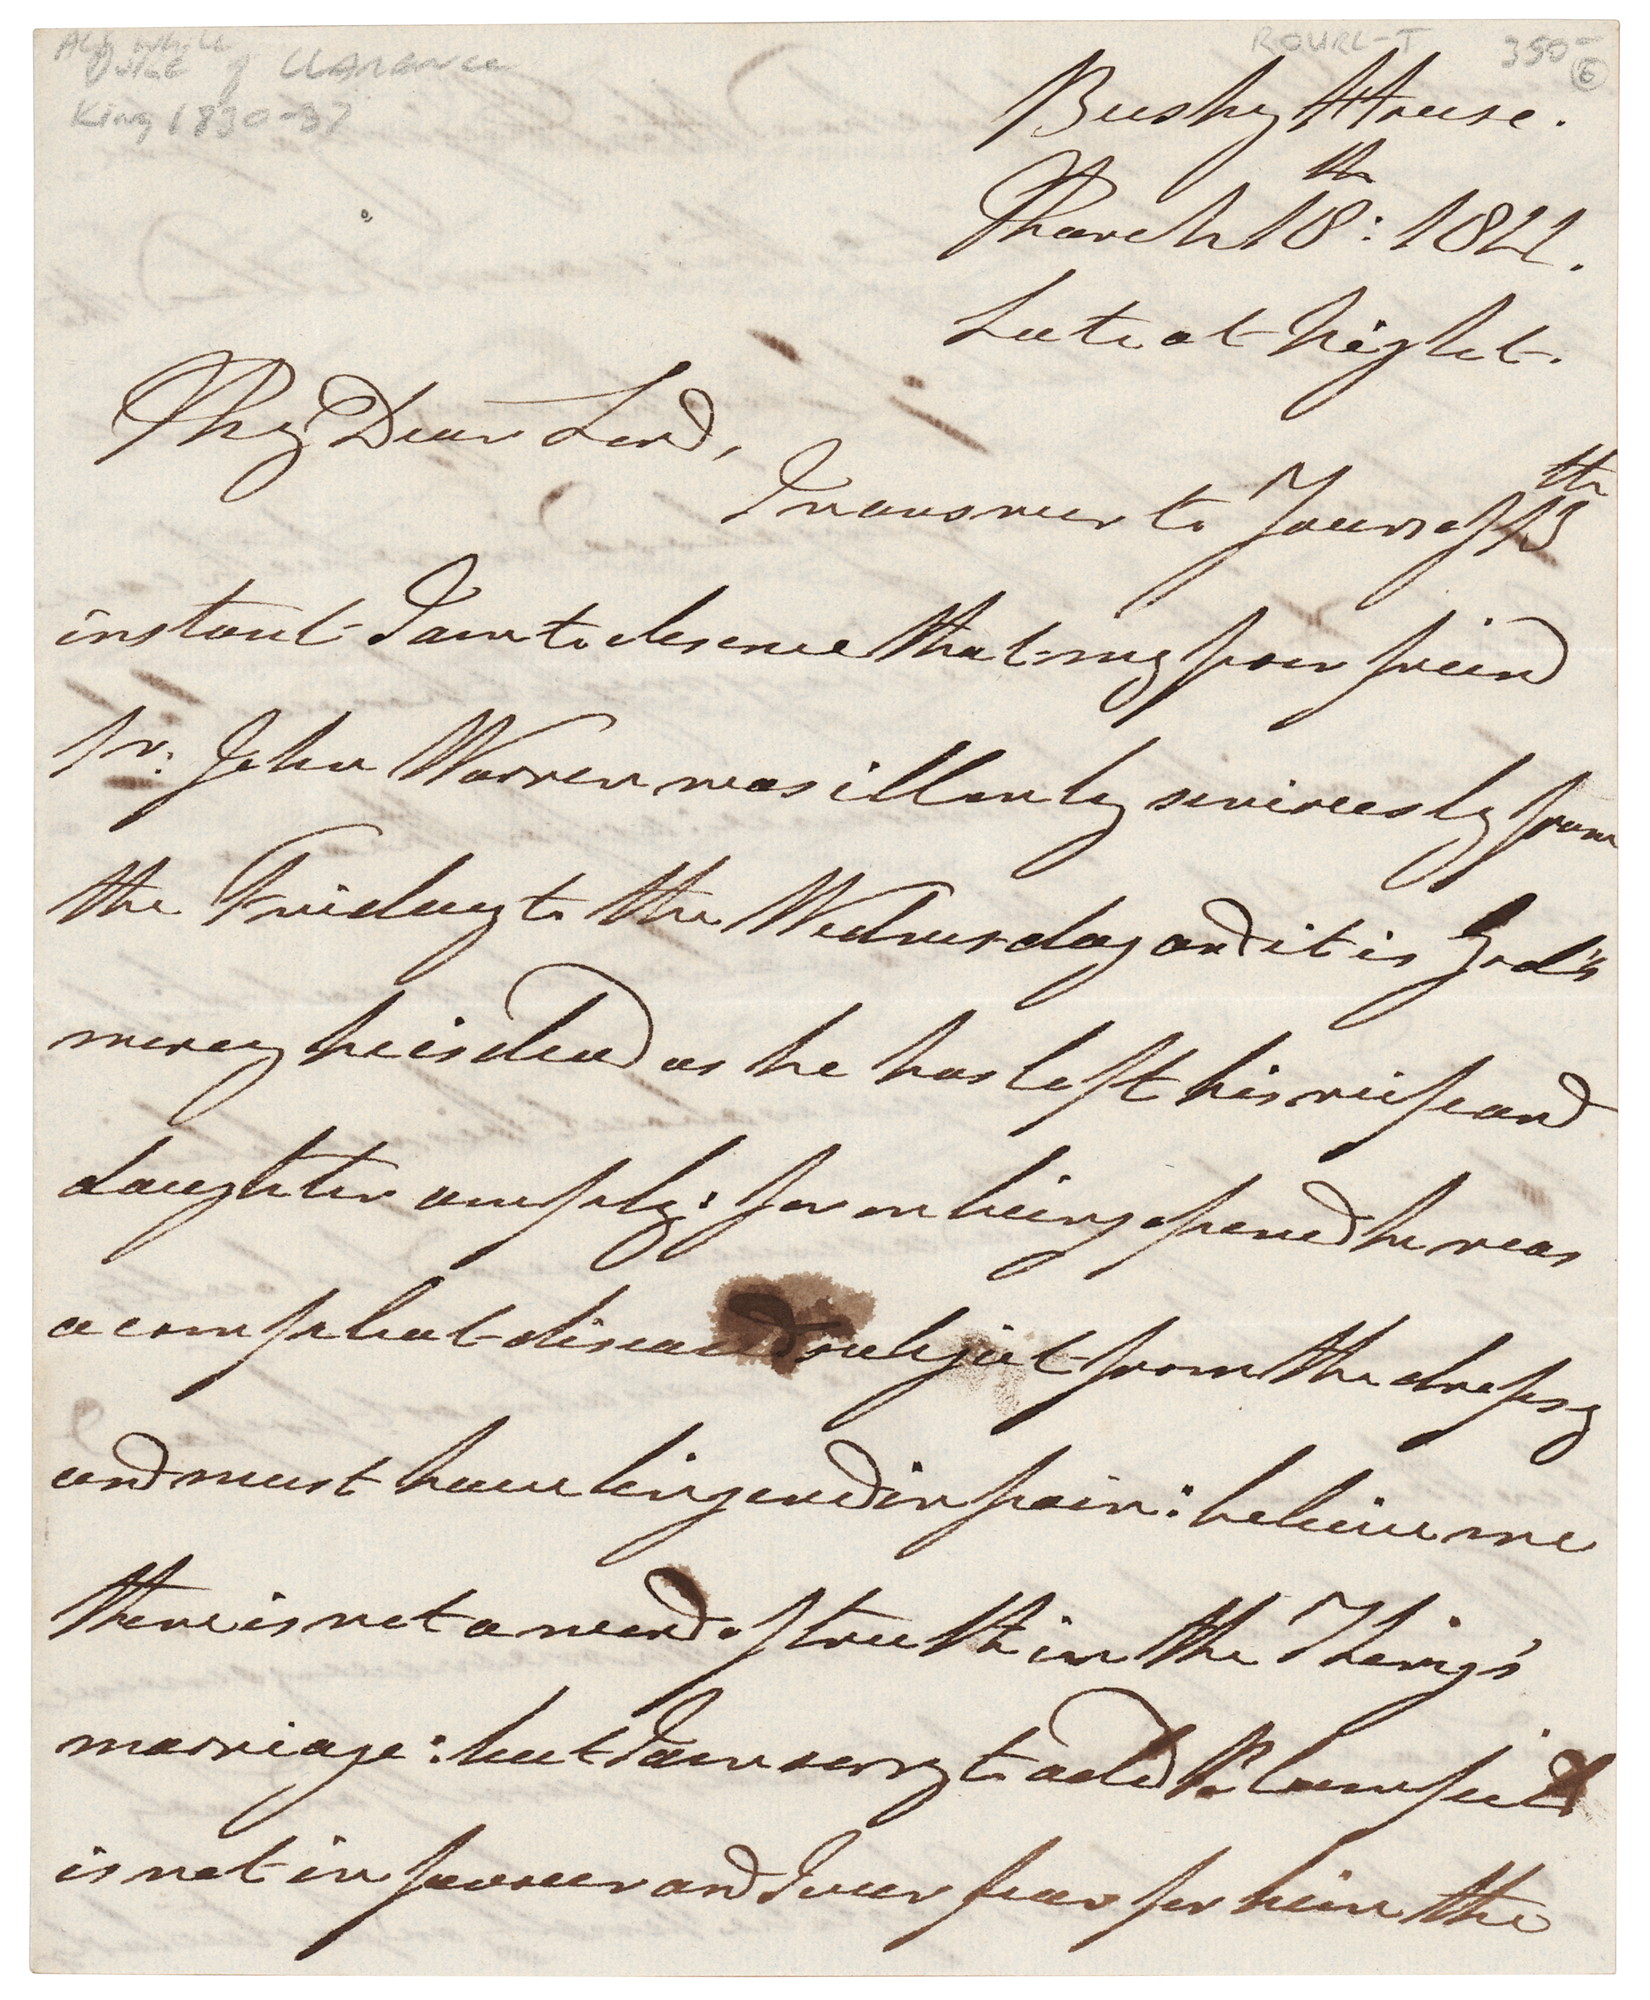 ALS while
Duke of Clarence
King 1830-37
350-
6
Bushy House.
March 18th: 1822.
Late at Night.
My Dear Lord,
In answer to Yours of 13th
instant I am to observe that my poor freind
Sr: John Warren was ill only seriously from
the Friday to the Wednesday and it is God's
mercy he is dead as he has left his wife and
daughter amply: for on being opened he was
a compleat diseased subject from the dropsy
and must have lingered in pain: believe me
there is not a word of truth in the King's
marriage: but I am sorry to add Bloomfield
is not in favour and I ever fear for him the